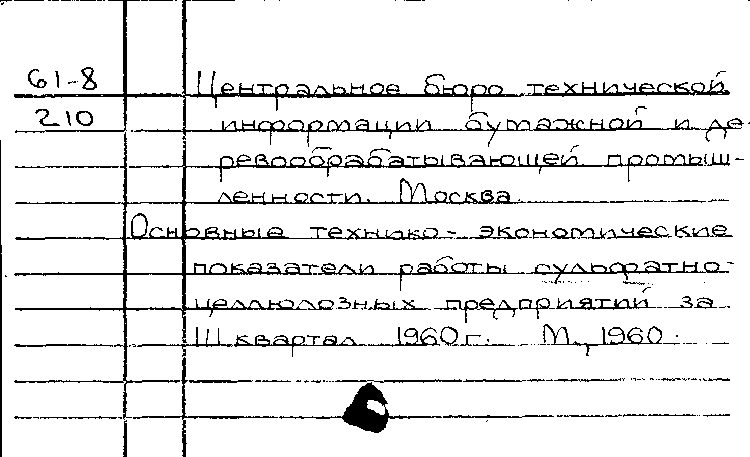 61-8 Центральное бюро технической
210 информации бумажной и де-
ревообрабатывающей промыш-
ленности. Москва.
Основные технико-экономические
показатели работы сульфатно-
целлюлозных предприятий за
III квартал 1960г. М., 1960.